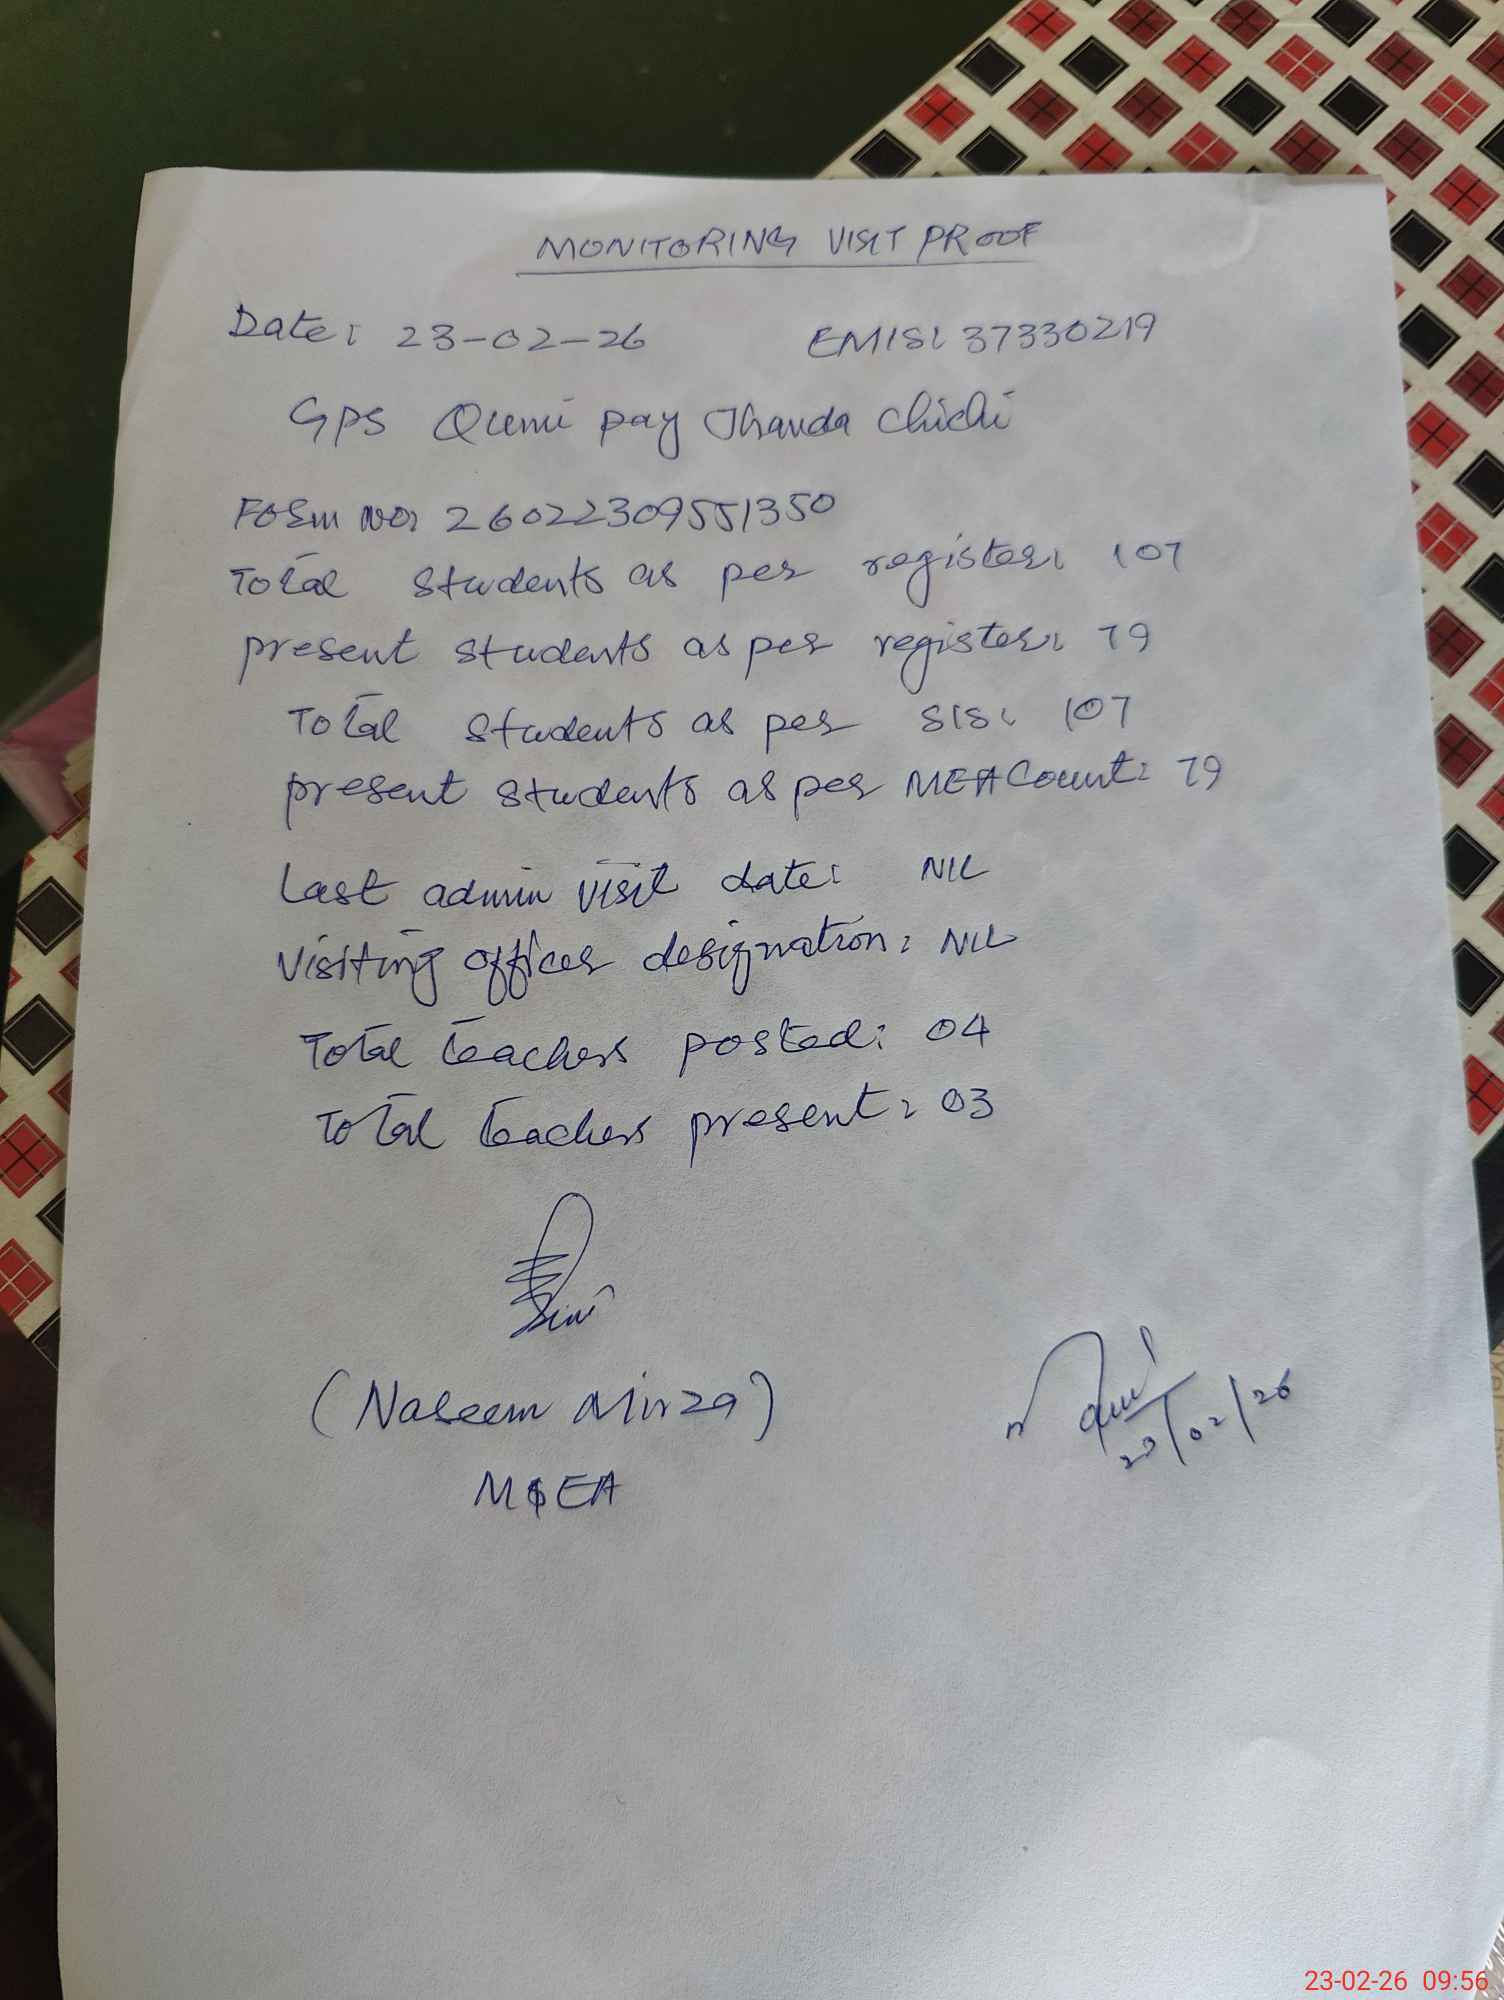 MONITORING VISIT PROOF
Date: 23-02-26 EMIS: 37330219
GPS Qumi pay Thanda Chichi
Form No: 26022309551350
Total students as per register: 107
present students as per register: 79
Total students as per SIS: 107
present students as per MEA Count: 79
Last admin visit date: NIL
Visiting officer designation: NIL
Total teachers posted: 04
Total teachers present: 03
(Naseem Mirza)
MEA
23/02/26
23-02-26 09:56